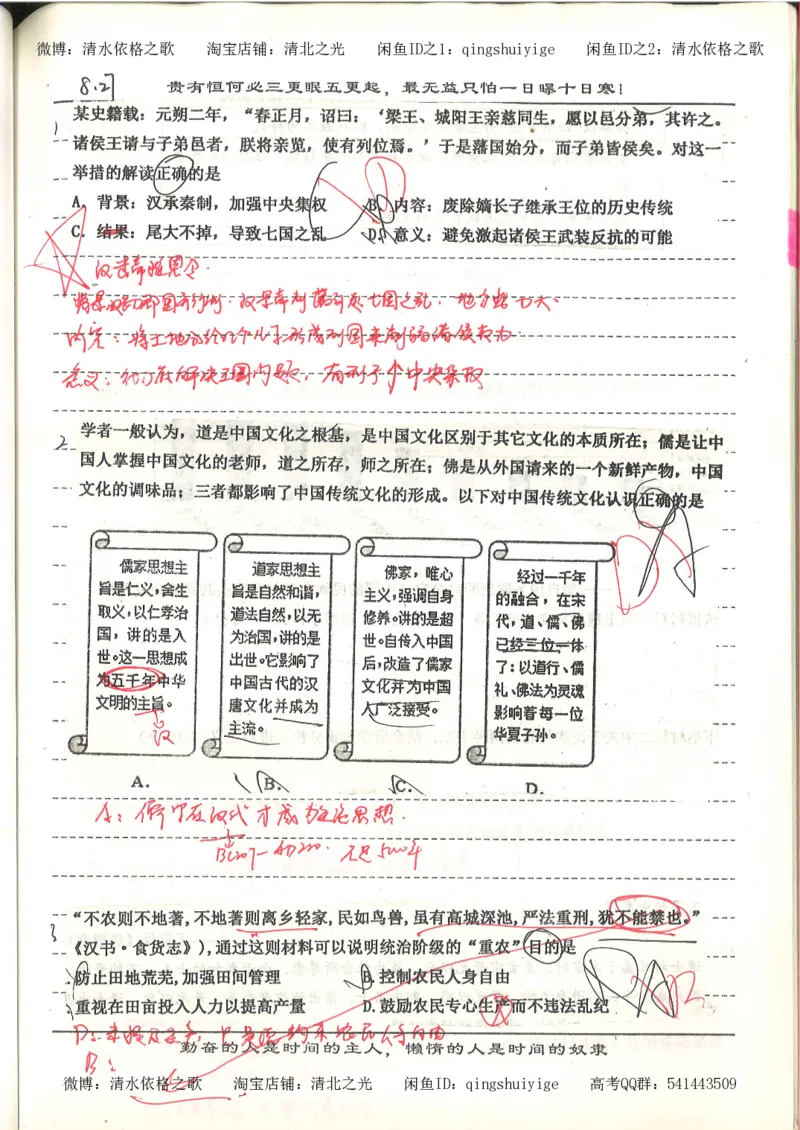 微博：清水依格之歌 淘宝店铺：清北之光 闲鱼ID之1：qingshuiyige 闲鱼ID之2：清水依格之歌
8.27 贵有恒何必三更眠五更起，最无益只怕一日曝十日寒！
某史籍载：元朔二年，“春正月，诏曰：‘梁王、城阳王亲慈同生，愿以邑分弟，其许之。
1
诸侯王请与子弟邑者，朕将亲览，使有列位焉。’于是藩国始分，而子弟皆侯矣。对这一
举措的解读正确的是
A．背景：汉承秦制，加强中央集权 B．内容：废除嫡长子继承王位的历史传统
C．结果：尾大不掉，导致七国之乱 D．意义：避免激起诸侯王武装反抗的可能
汉武帝推恩令
内容：将土地分给
意义：解决王国问题，有利于中央集权
2 学者一般认为，道是中国文化之根基，是中国文化区别于其它文化的本质所在；儒是让中
国人掌握中国文化的老师，道之所存，师之所在；佛是从外国请来的一个新鲜产物，中国
文化的调味品；三者都影响了中国传统文化的形成。以下对中国传统文化认识正确的是
D
儒家思想主
旨是仁义，舍生
取义，以仁孝治
国，讲的是入
世。这一思想成
为五千年中华
文明的主旨。
汉
A．
道家思想主
旨是自然和谐，
道法自然，以无
为治国，讲的是
出世。它影响了
中国古代的汉
唐文化并成为
主流。
B．
佛家，唯心
主义，强调自身
修养。讲的是超
世。自传入中国
后，改造了儒家
文化并为中国
人广泛接受。
C．
经过一千年
的融合，在宋
代，道、儒、佛
已经三位一体
了：以道行、儒
礼、佛法为灵魂
影响着每一位
华夏子孙。
D．
A：儒家在汉代才成为统治思想．
不足5000年
“不农则不地著，不地著则离乡轻家，民如鸟兽，虽有高城深池，严法重刑，犹不能禁也。”
3
《汉书·食货志》），通过这则材料可以说明统治阶级的“重农”目的是
防止田地荒芜，加强田间管理 B．控制农民人身自由
重视在田亩投入人力以提高产量 D．鼓励农民专心生产而不违法乱纪
D：
勤奋的人是时间的主人，懒惰的人是时间的奴隶
B：
微博：清水依格之歌 淘宝店铺：清北之光 闲鱼ID：qingshuiyige 高考QQ群：541443509